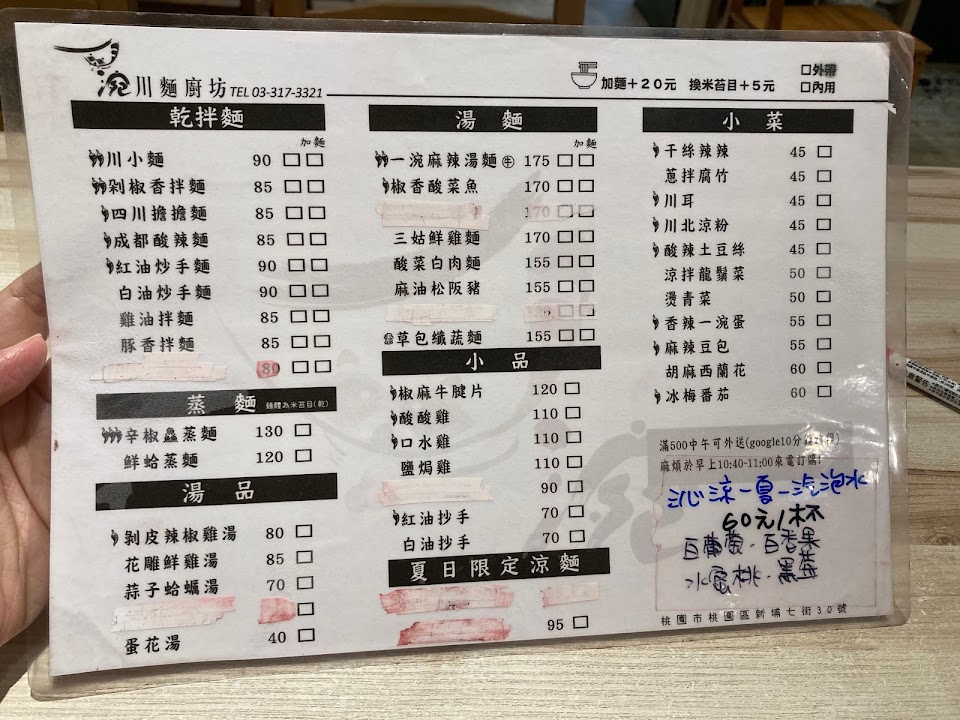 浣川麵廚坊 TEL 03-317-3321
加麵+20元 換米苔目+5元
□外帶
□內用
乾拌麵
加麵
川小麵 90 □□
剁椒香拌麵 85 □□
四川擔擔麵 85 □□
成都酸辣麵 85 □□
紅油炒手麵 90 □□
白油炒手麵 90 □□
雞油拌麵 85 □□
豚香拌麵 85 □□
80 □□
蒸麵 麵體為米苔目(乾)
辛椒鱻蒸麵 130 □
鮮蛤蒸麵 120 □
湯品
剝皮辣椒雞湯 80 □
花雕鮮雞湯 85 □
蒜子蛤蠣湯 70 □
□
蛋花湯 40 □
湯麵
加麵
一浣麻辣湯麵㊕ 175 □□
椒香酸菜魚 170 □□
170 □□
三姑鮮雞麵 170 □□
酸菜白肉麵 155 □□
麻油松阪豬 155 □□
□□
草包纖蔬麵 155 □□
小品
椒麻牛腱片 120 □
酸酸雞 110 □
口水雞 110 □
鹽焗雞 110 □
90 □
紅油抄手 70 □
白油抄手 70 □
夏日限定涼麵
95 □
小菜
干絲辣辣 45 □
蔥拌腐竹 45 □
川耳 45 □
川北涼粉 45 □
酸辣土豆絲 45 □
涼拌龍鬚菜 50 □
燙青菜 50 □
香辣一浣蛋 55 □
麻辣豆包 55 □
胡麻西蘭花 60 □
冰梅番茄 60 □
滿500中午可外送(google10分鐘路程)
麻煩於早上10:40-11:00來電訂購!
沁涼一夏-汽泡水
60元/杯
白葡萄、百香果
水蜜桃、黑莓
桃園市桃園區新埔七街30號